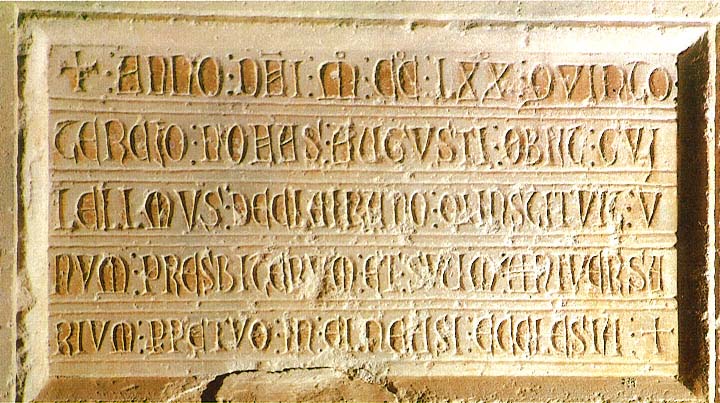 ✢ : ANNO : DNI : M : CC : LXX : QVINTO
TERCIO : NONAS : AUGUSTI : OBIIT : GUI
LELLMUS : DE CLAIRANO : QUI INSTITVIT : U
NUM : PRESBITERUM : ET : SUUM : ANIVERSA
RIUM : PPETUO : IN : ELNENSI : ECCLESIA : +